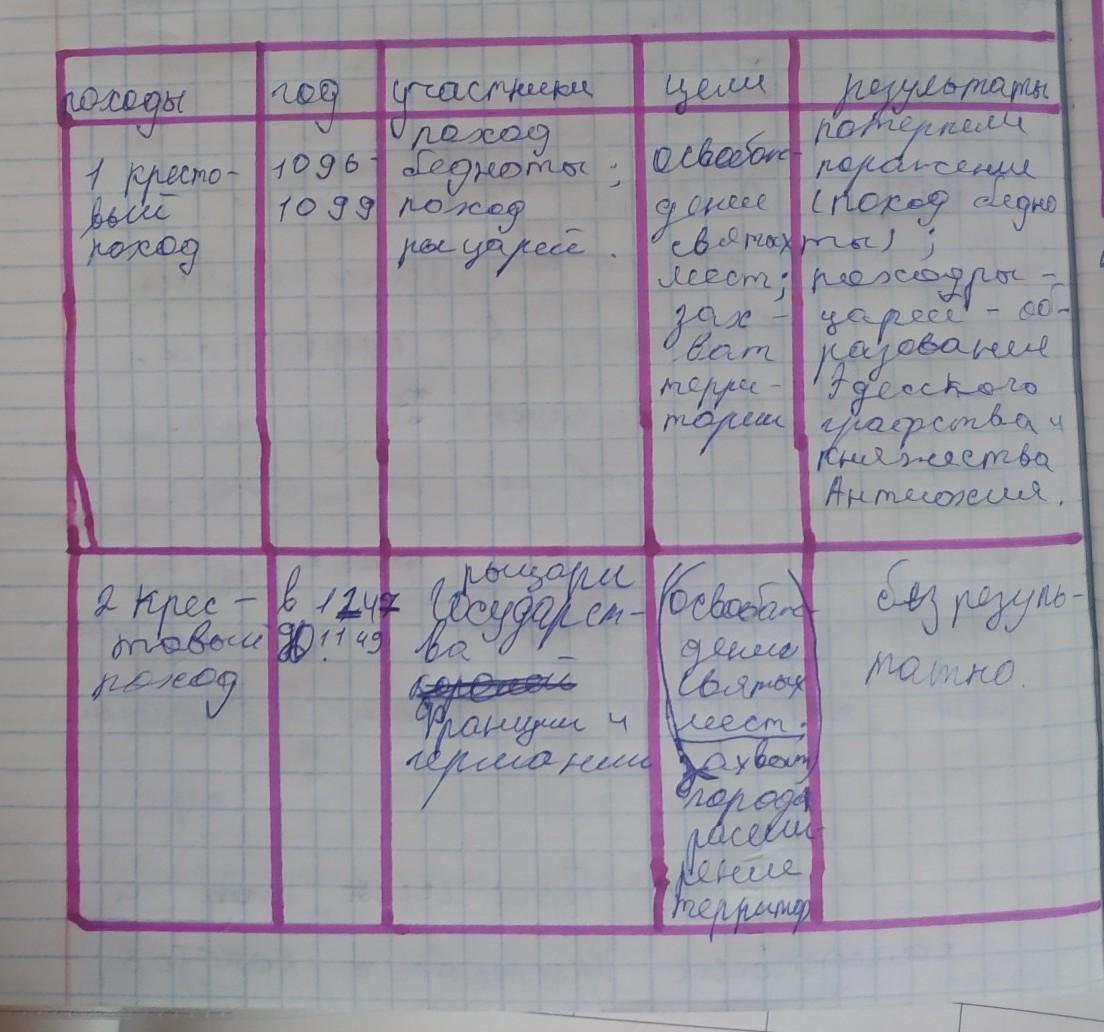 походы год участники цели результаты
1 кресто-
вый
поход
1096-
1099
поход
бедноты;
поход
рыцарей.
освобож-
дение
святых
мест;
зах-
ват
терри-
тории
потерпели
поражение
(поход бедно
ты);
поход ры-
царей - об-
разование
Эдесского
графства и
княжества
Антиохия.
2 крес-
товый
поход
в 1247
до 1149
рыцари
Государст-
ва
Франции и
германии
(освобож-
дение
святых
мест;)
захват
города
расши-
рение
территор
безрезуль-
татно.